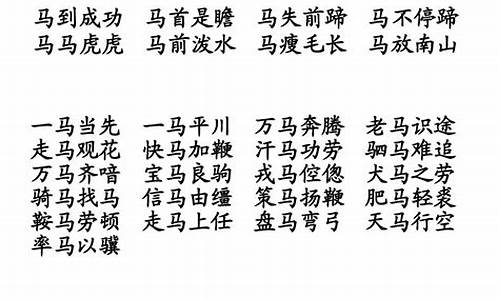 马到成功 马首是瞻 马失前蹄 马不停蹄
马马虎虎 马前泼水 马瘦毛长 马放南山
一马当先 一马平川 万马奔腾 老马识途
走马观花 快马加鞭 汗马功劳 驷马难追
万马齐喑 宝马良驹 戎马倥偬 犬马之劳
骑马找马 信马由缰 策马扬鞭 肥马轻裘
鞍马劳顿 走马上任 盘马弯弓 天马行空
率马以骥